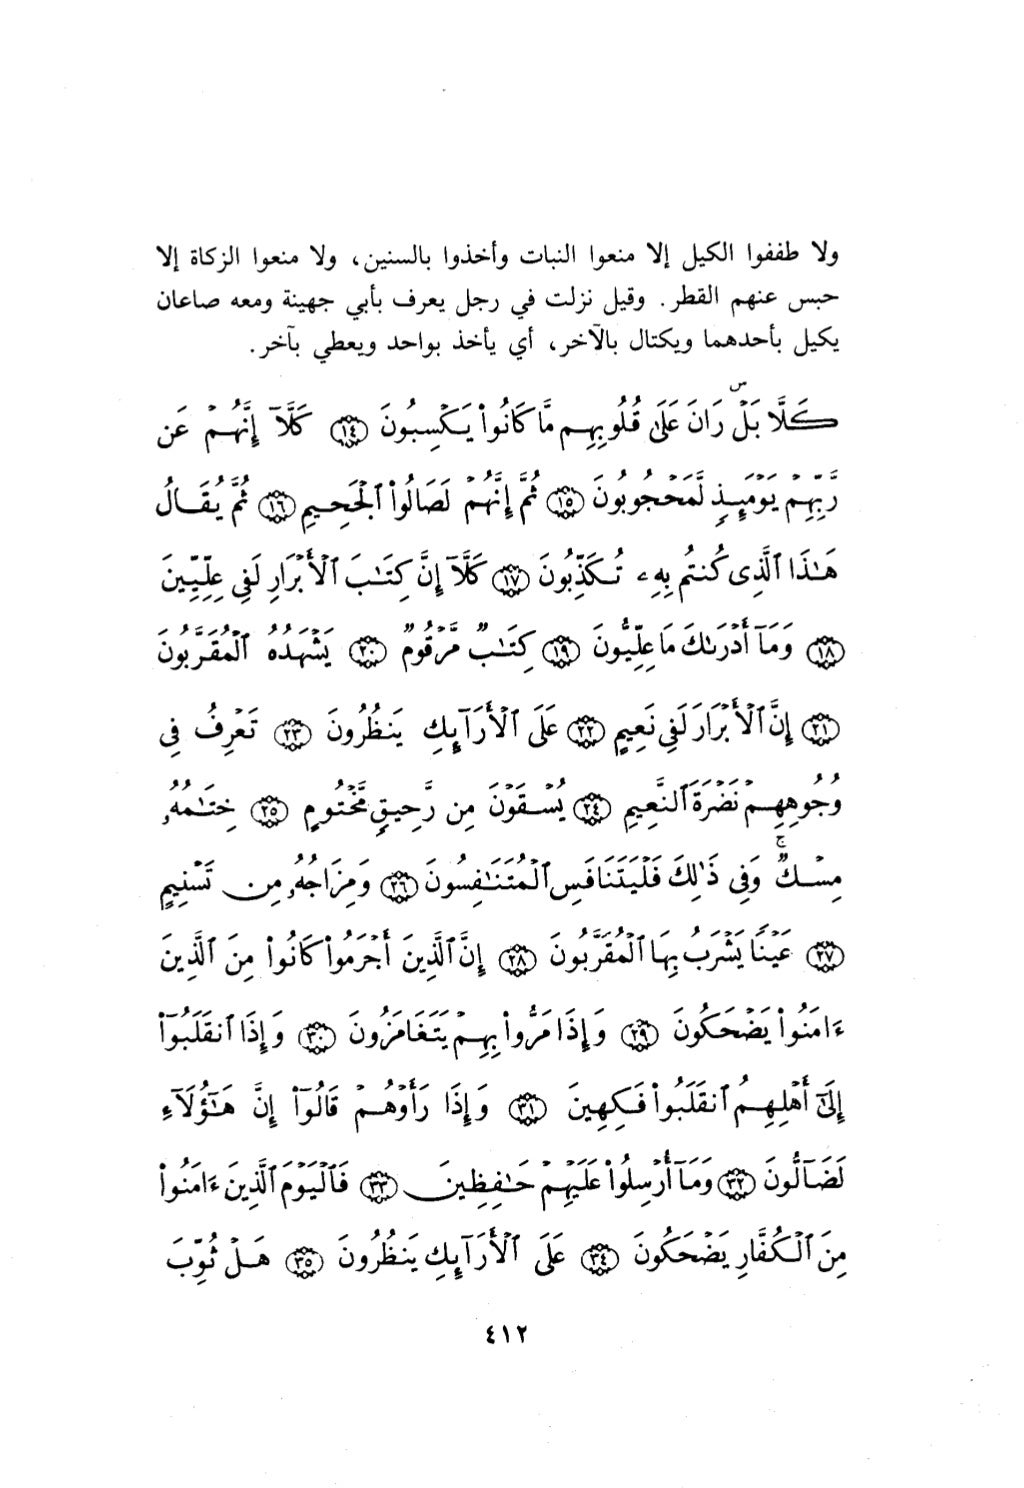 ولا طففوا الكيل إلا منعوا النبات وأخذوا بالسنين، ولا منعوا الزكاة إلا
حبس عنهم القطر. وقيل نزلت في رجل يعرف بأبي جهينة ومعه صاعان
يكيل بأحدهما ويكتال بالآخر، أي يأخذ بواحد ويعطي بآخر.
كَلَّا بَلْۜ رَانَ عَلَىٰ قُلُوبِهِم مَّا كَانُوا۟ يَكْسِبُونَ ١٤ كَلَّآ إِنَّهُمْ عَن
رَّبِّهِمْ يَوْمَئِذٍ لَّمَحْجُوبُونَ ١٥ ثُمَّ إِنَّهُمْ لَصَالُوا۟ ٱلْجَحِيمِ ١٦ ثُمَّ يُقَالُ
هَـٰذَا ٱلَّذِى كُنتُم بِهِۦ تُكَذِّبُونَ ١٧ كَلَّآ إِنَّ كِتَـٰبَ ٱلْأَبْرَارِ لَفِى عِلِّيِّينَ
١٨ وَمَآ أَدْرَىٰكَ مَا عِلِّيُّونَ ١٩ كِتَـٰبٌ مَّرْقُومٌ ٢٠ يَشْهَدُهُ ٱلْمُقَرَّبُونَ
٢١ إِنَّ ٱلْأَبْرَارَ لَفِى نَعِيمٍ ٢٢ عَلَى ٱلْأَرَآئِكِ يَنظُرُونَ ٢٣ تَعْرِفُ فِى
وُجُوهِهِمْ نَضْرَةَ ٱلنَّعِيمِ ٢٤ يُسْقَوْنَ مِن رَّحِيقٍ مَّخْتُومٍ ٢٥ خِتَـٰمُهُۥ
مِسْكٌ ۚ وَفِى ذَٰلِكَ فَلْيَتَنَافَسِ ٱلْمُتَنَـٰفِسُونَ ٢٦ وَمِزَاجُهُۥ مِن تَسْنِيمٍ
٢٧ عَيْنًا يَشْرَبُ بِهَا ٱلْمُقَرَّبُونَ ٢٨ إِنَّ ٱلَّذِينَ أَجْرَمُوا۟ كَانُوا۟ مِنَ ٱلَّذِينَ
ءَامَنُوا۟ يَضْحَكُونَ ٢٩ وَإِذَا مَرُّوا۟ بِهِمْ يَتَغَامَزُونَ ٣٠ وَإِذَا ٱنقَلَبُوٓا۟
إِلَىٰٓ أَهْلِهِمُ ٱنقَلَبُوا۟ فَكِهِينَ ٣١ وَإِذَا رَأَوْهُمْ قَالُوٓا۟ إِنَّ هَـٰٓؤُلَآءِ
لَضَآلُّونَ ٣٢ وَمَآ أُرْسِلُوا۟ عَلَيْهِمْ حَـٰفِظِينَ ٣٣ فَٱلْيَوْمَ ٱلَّذِينَ ءَامَنُوا۟
مِنَ ٱلْكُفَّارِ يَضْحَكُونَ ٣٤ عَلَى ٱلْأَرَآئِكِ يَنظُرُونَ ٣٥ هَلْ ثُوِّبَ
٤١٢